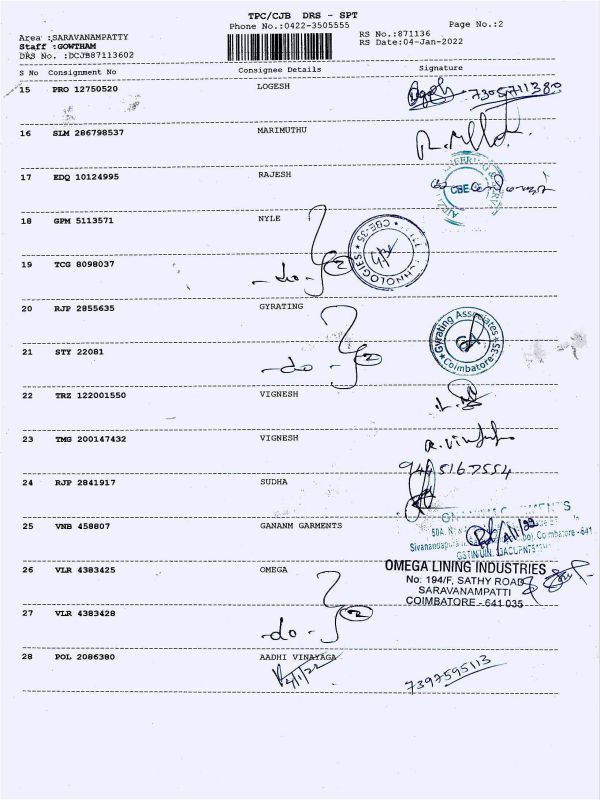 TPC/CJB DRS - SPT
Phone No.:0422-3505555
Page No.:2
Area :SARAVANAMPATTY
RS No.:871136
Staff :GOWTHAM
RS Date:04-Jan-2022
DRS No. :DCJB87113602
S No Consignment No Consignee Details Signature
15 PRO 12750520 LOGESH 7305711380
16 SLM 286798537 MARIMUTHU
17 EDQ 10124995 RAJESH CBE
18 GPM 5113571 NYLE CBE-35
19 TCG 8098037 -do- 2
20 RJP 2855635 GYRATING Gyrating Associates Coimbatore-35
21 STY 22081 -do- 2
22 TRZ 122001550 VIGNESH
23 TMG 200147432 VIGNESH
24 RJP 2841917 SUDHA
25 VNB 458807 GANANM GARMENTS
26 VLR 4383425 OMEGA OMEGA LINING INDUSTRIES
No: 194/F, SATHY ROAD
SARAVANAMPATTI
COIMBATORE - 641 035
27 VLR 4383428 -do- 2
28 POL 2086380 AADHI VINAYAGA
7397595113